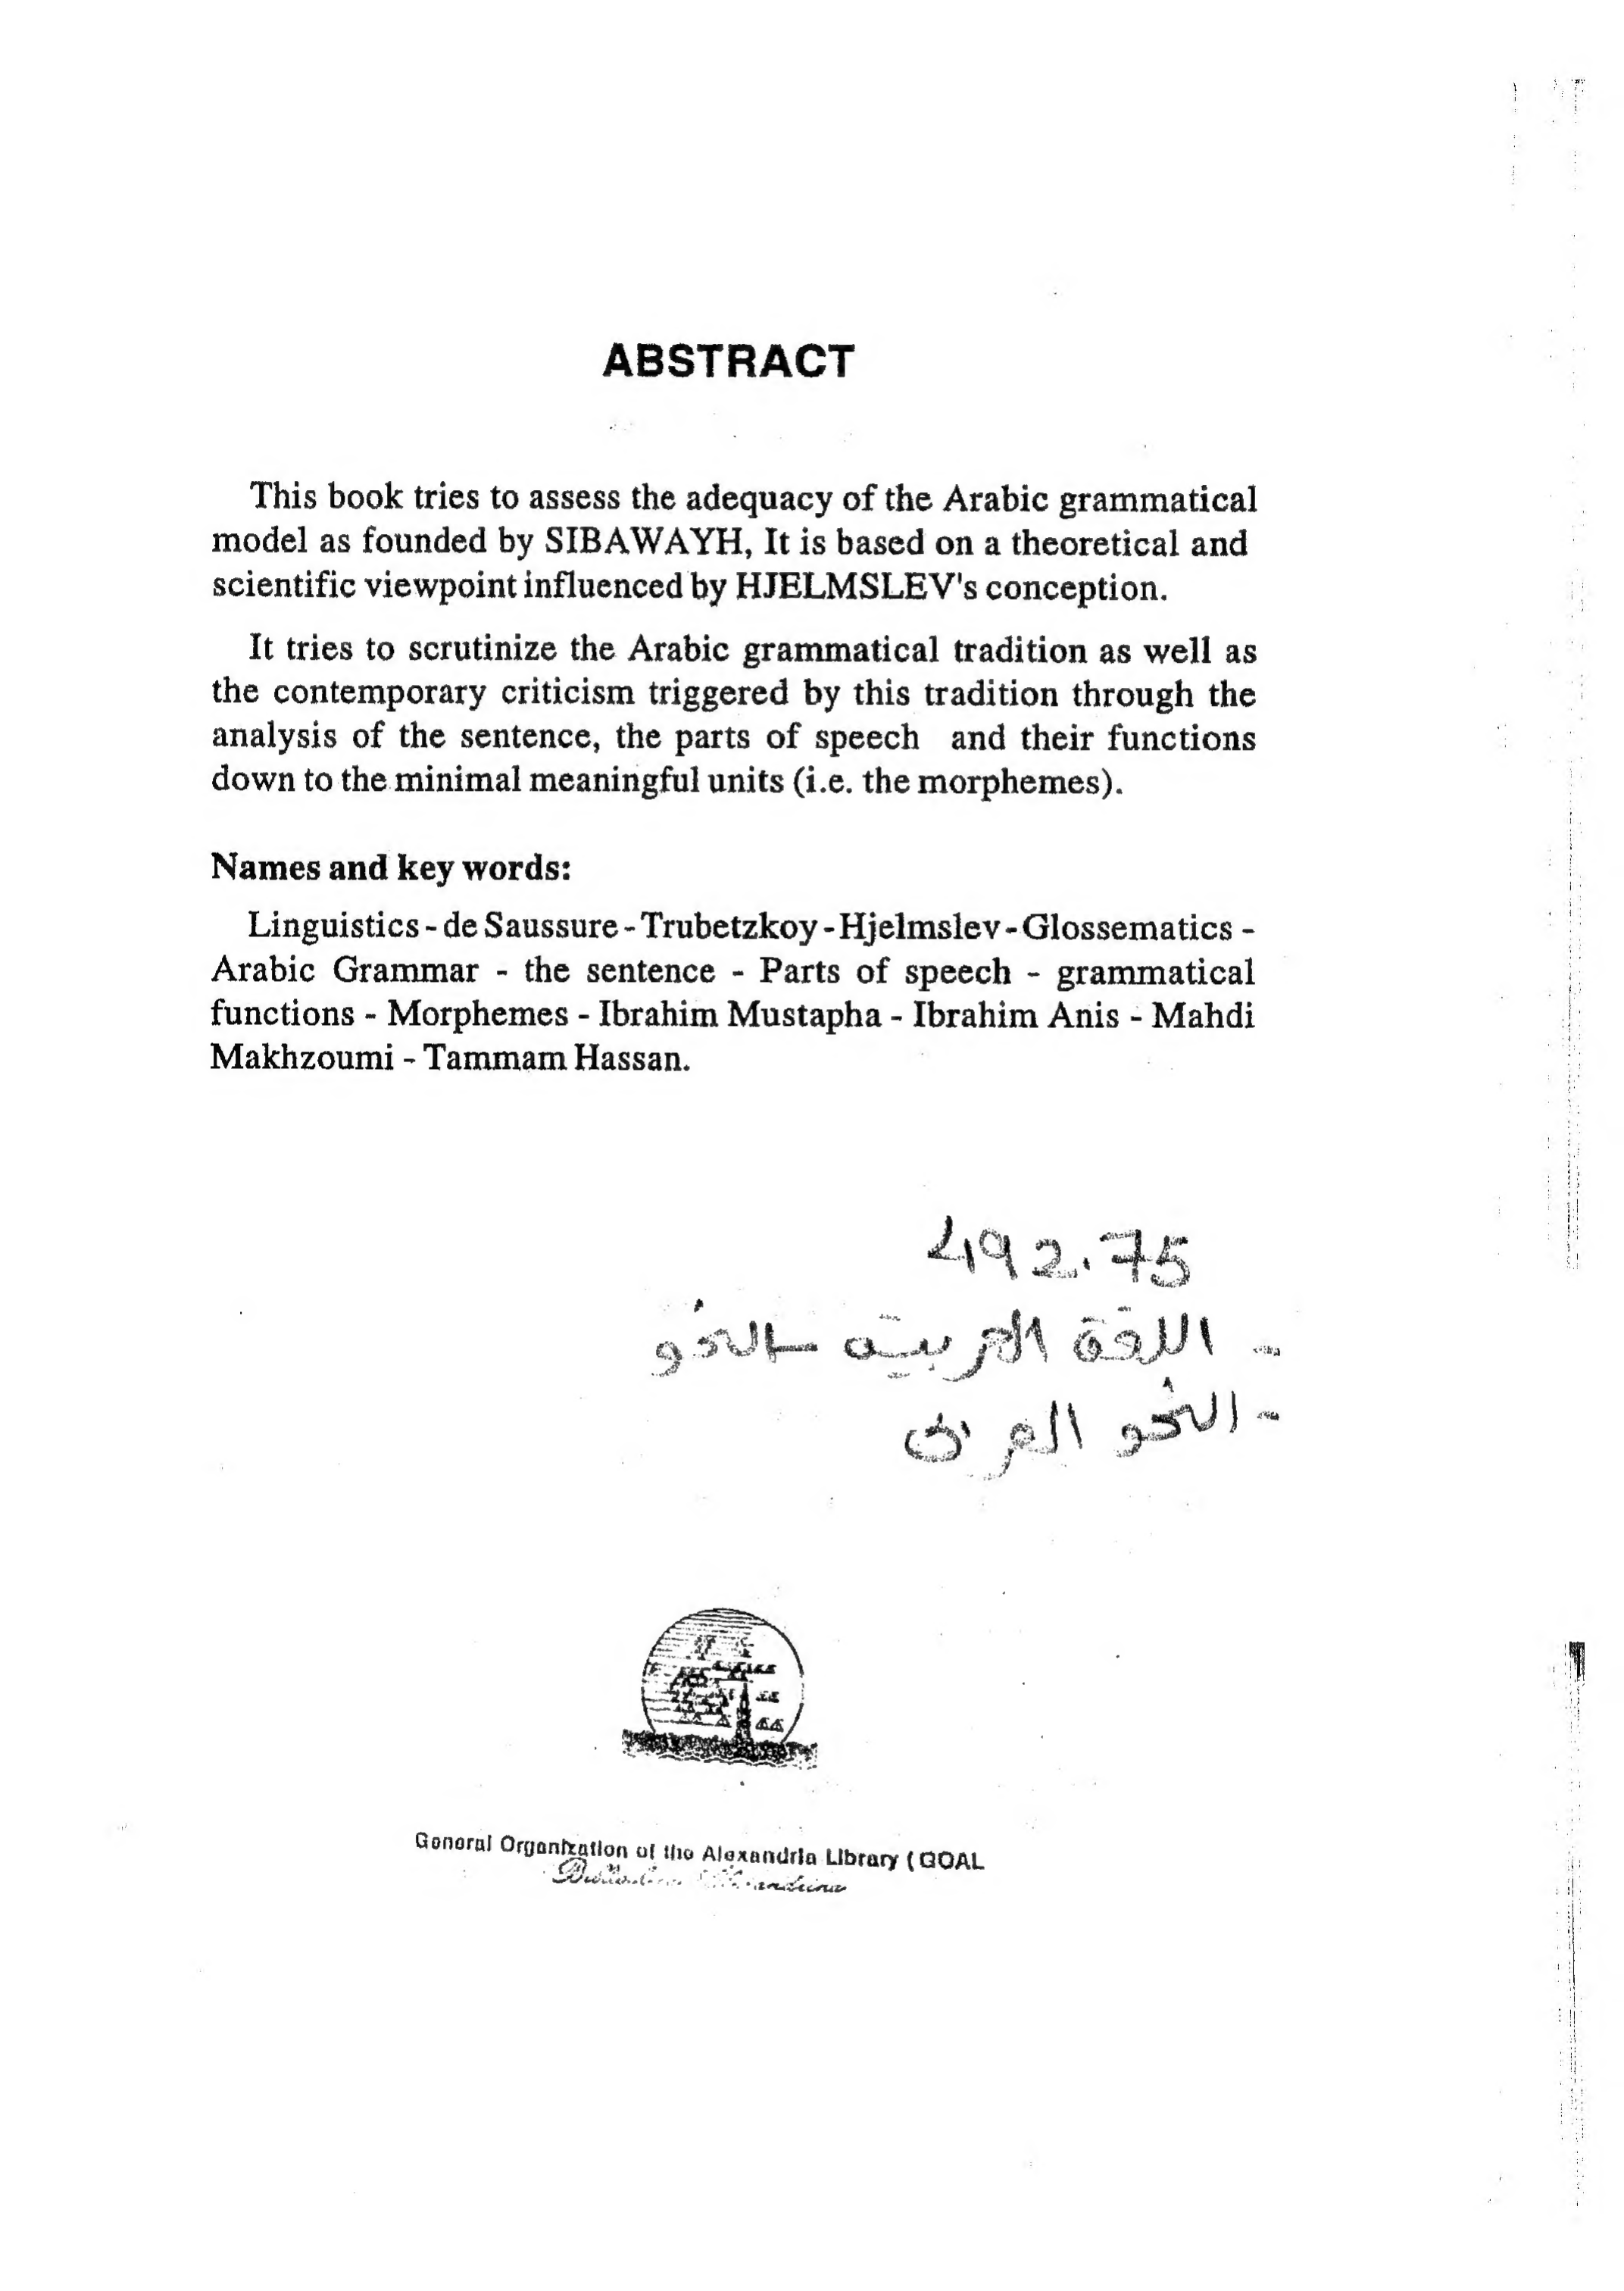 ABSTRACT
This book tries to assess the adequacy of the Arabic grammatical
model as founded by SIBAWAYH, It is based on a theoretical and
scientific viewpoint influenced by HJELMSLEV's conception.
It tries to scrutinize the Arabic grammatical tradition as well as
the contemporary criticism triggered by this tradition through the
analysis of the sentence, the parts of speech and their functions
down to the minimal meaningful units (i.e. the morphemes).
Names and key words:
Linguistics - de Saussure - Trubetzkoy - Hjelmslev - Glossematics -
Arabic Grammar - the sentence - Parts of speech - grammatical
functions - Morphemes - Ibrahim Mustapha - Ibrahim Anis - Mahdi
Makhzoumi - Tammam Hassan.
492.75
- اللغة العربية - النحو
- النحو العربى
General Organization of the Alexandria Library (GOAL